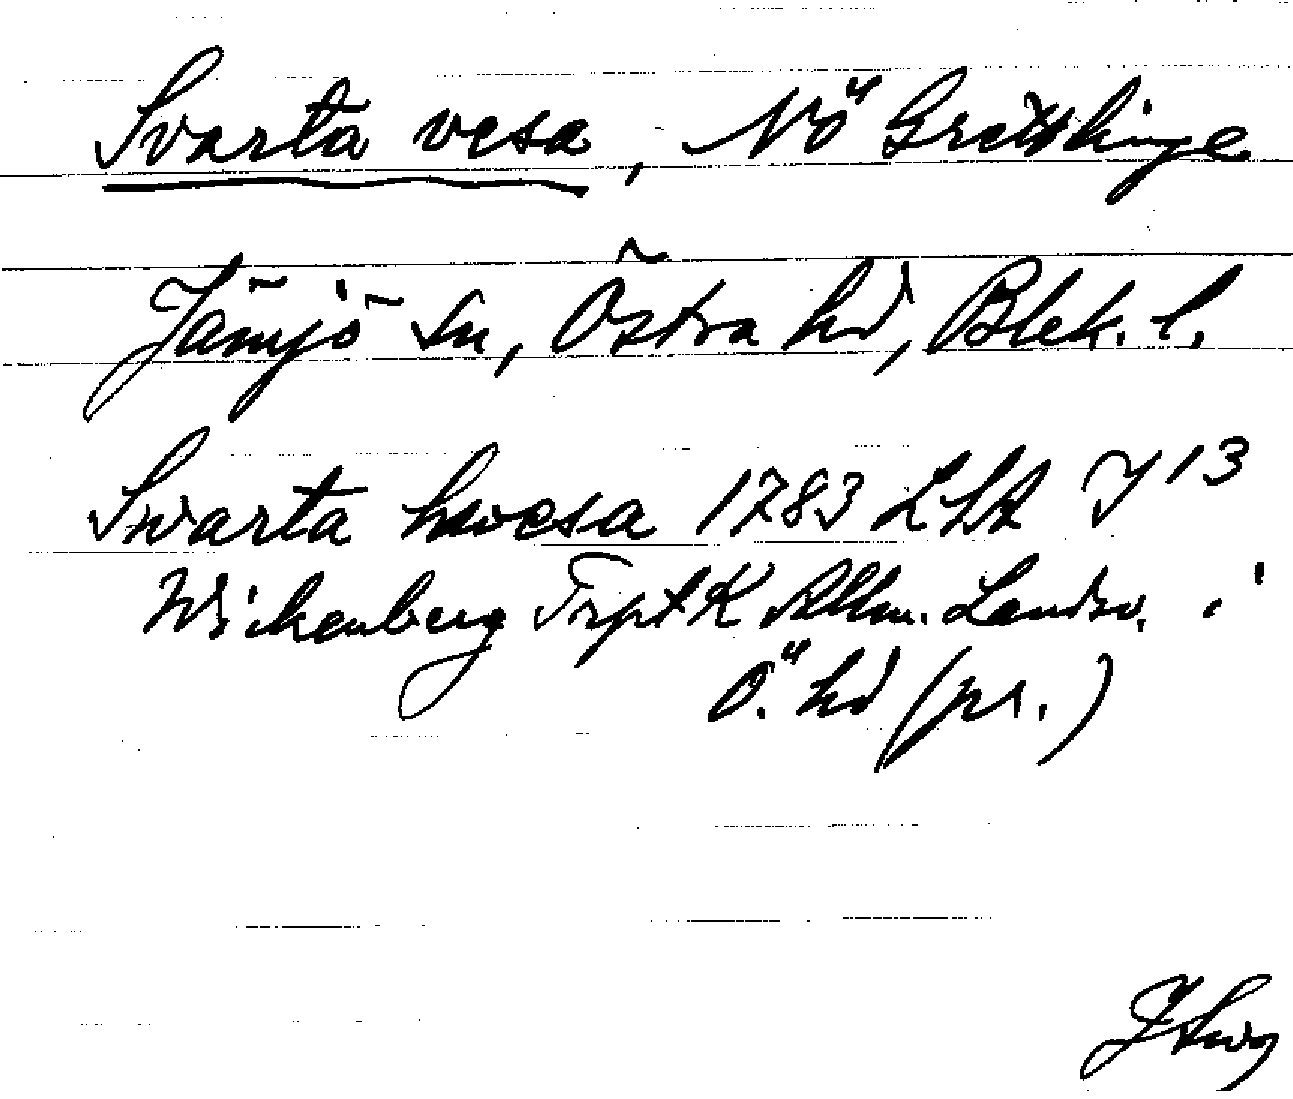 Svarta vesa, NÖ Grettslinge
Jämjö sn, Östra hd, Blek. l.
Swarta hwesa 1783 LSA J 13
Wickenberg Trpt K Allm. Landsv. i
Ö. hd (pr.)